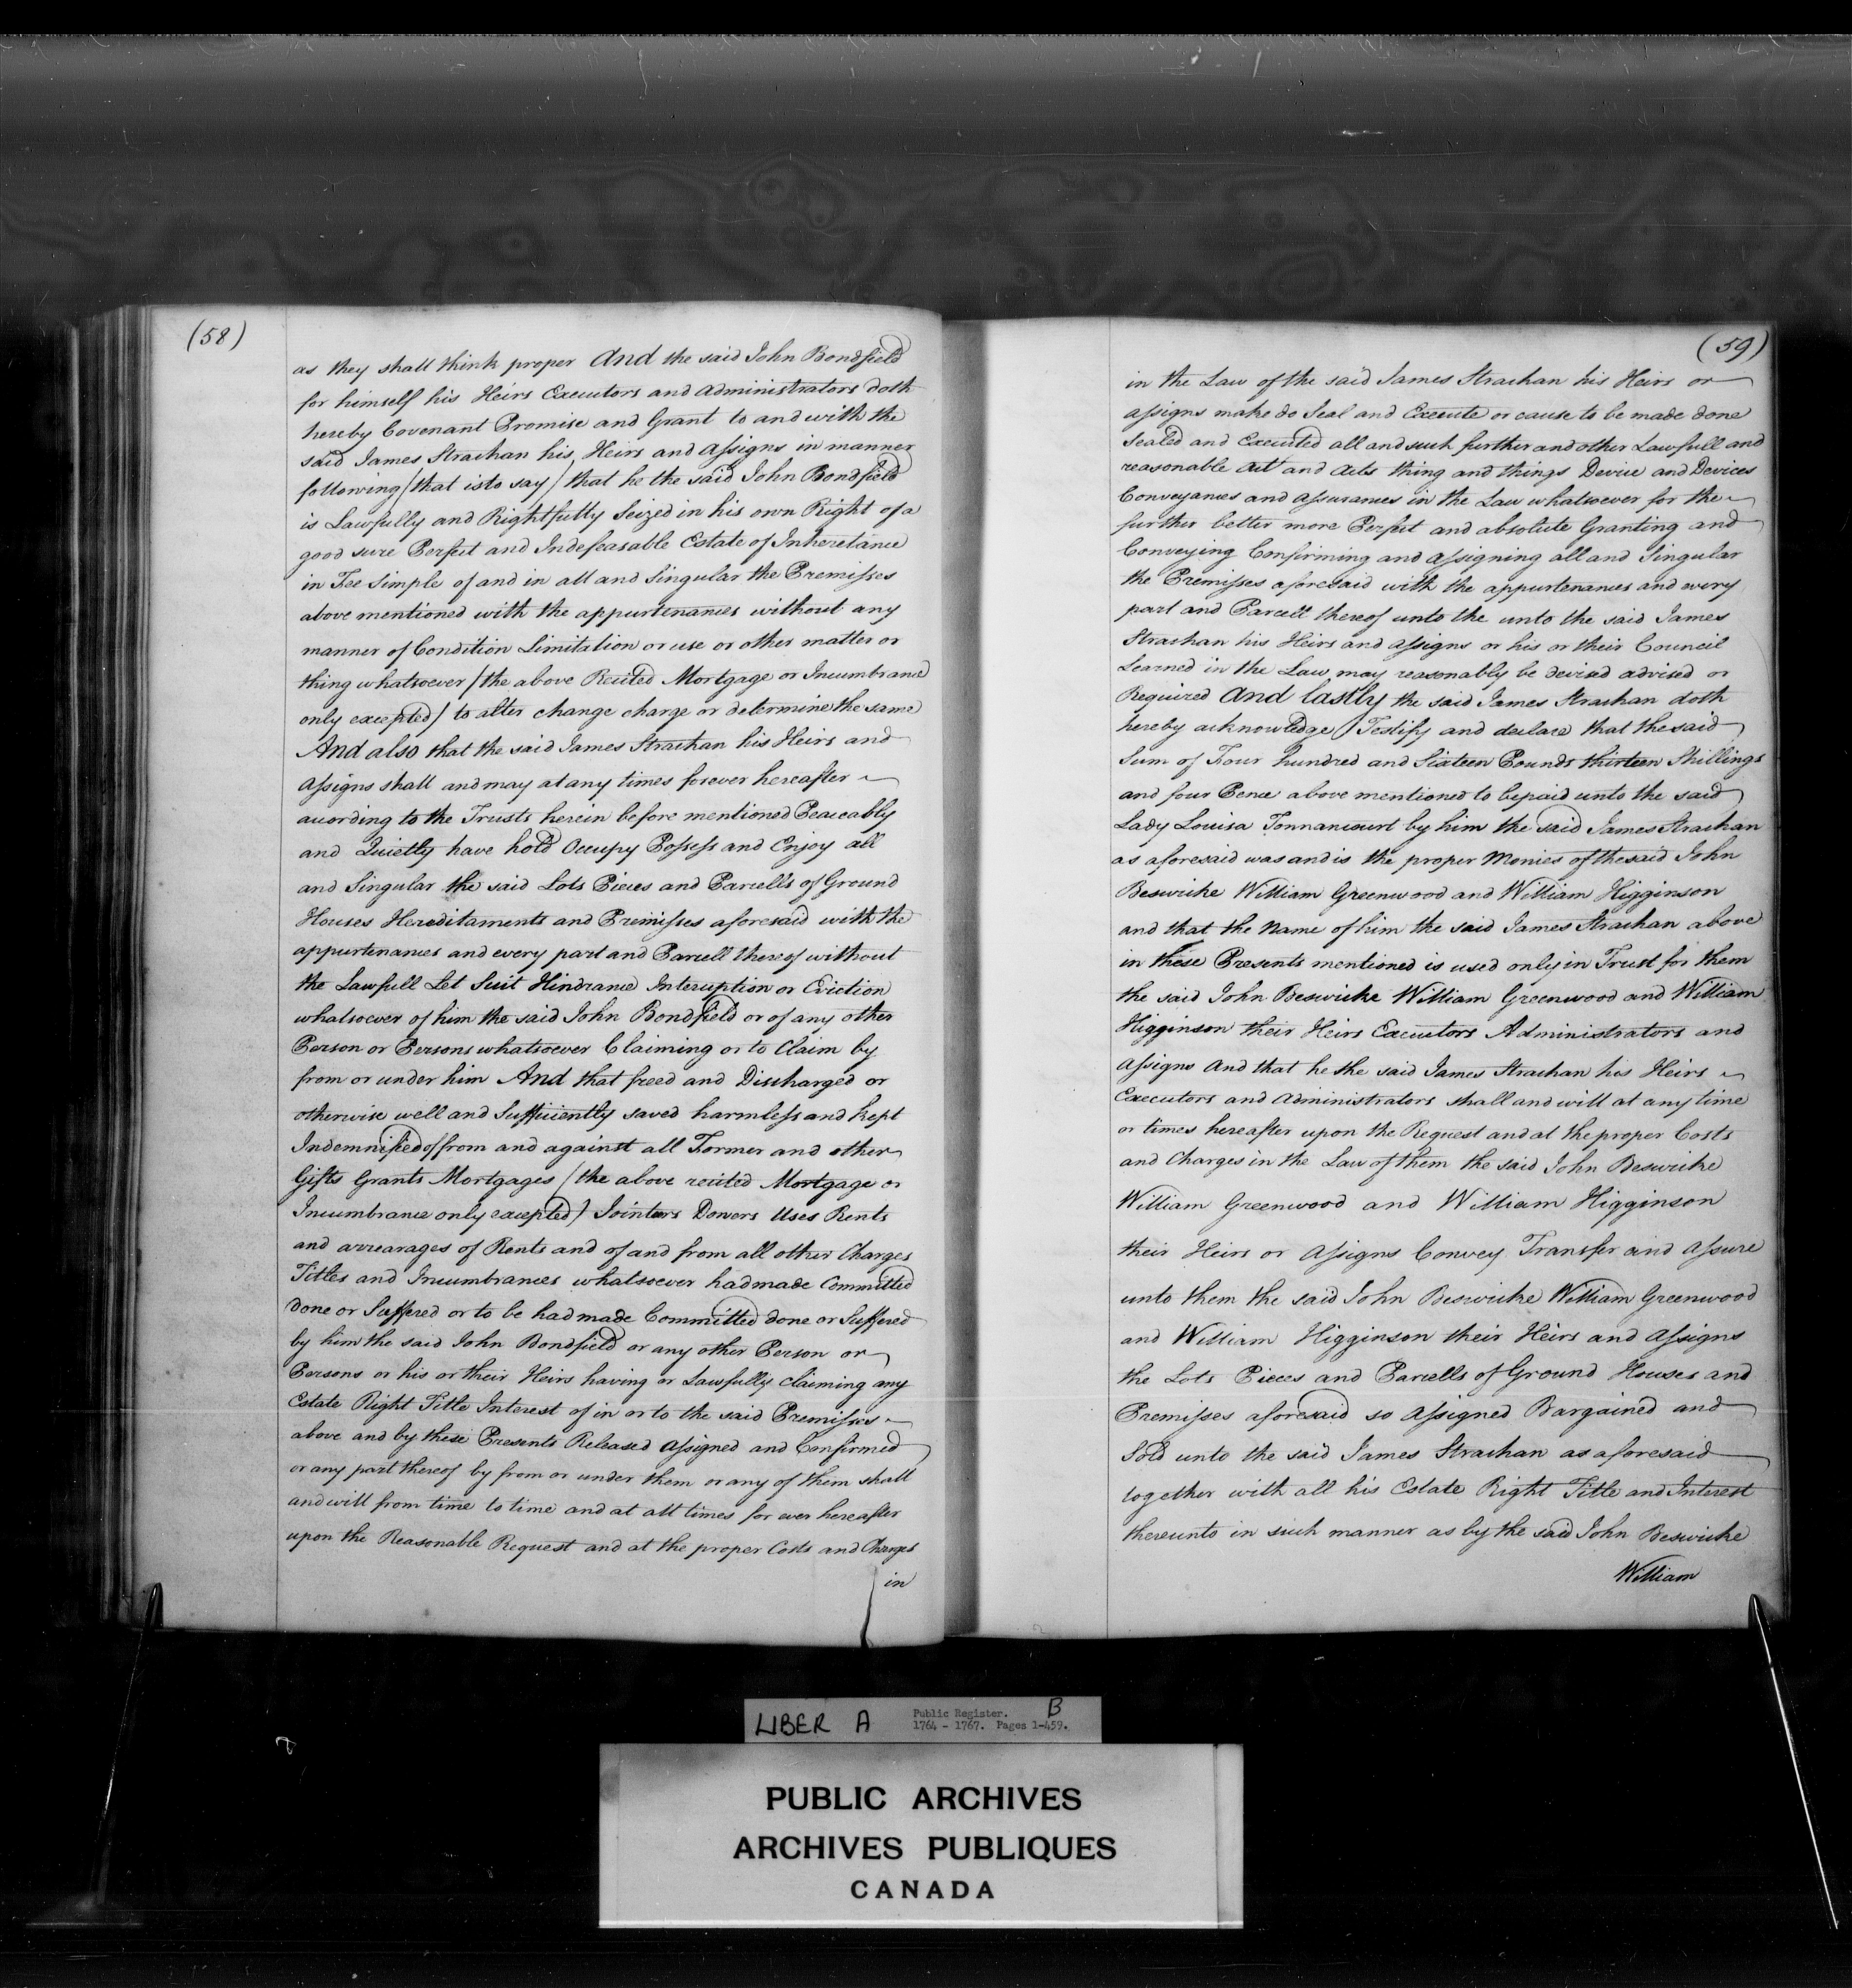 (58)
as they shall think proper And the said John Bondfield
for himself his Heirs Executors and Administrators doth
hereby Covenant Promise and Grant to and with the
said James Strachan his Heirs and Assigns in manner
following (that is to say) that he the said John Bondfield
is Lawfully and Rightfully Seized in his own Right of a
good sure Perfect and Indefeasable Estate of Inheretance
in Fee Simple of and in all and Singular the Premisses
above mentioned with the appurtenances without any
manner of Condition Limitation or use or other matter or
thing whatsoever (the above Recited Mortgage or Incumbrance
only excepted) to alter change charge or determine the same
And also that the said James Strachan his Heirs and
Assigns shall and may at any times forever hereafter
according to the Trusts herein before mentioned Peaceably
and Quietly have hold Occupy Possess and Enjoy all
and Singular the said Lots Pieces and Parcells of Ground
Houses Hereditaments and Premisses aforesaid with the
appurtenances and every part and Parcell thereof without
the Lawfull Let Suit Hindrance Interuption or Eviction
whatsoever of him the said John Bondfield or of any other
Person or Persons whatsoever Claiming or to Claim by
from or under him And that freed and Discharged or
otherwise well and Sufficiently saved harmless and kept
Indemnified of from and against all Former and other
Gifts Grants Mortgages (the above recited Mortgage or
Incumbrance only excepted) Jointurs Dowers Uses Rents
and arrearages of Rents and of and from all other Charges
Titles and Incumbrances whatsoever had made Committed
done or Suffered or to be had made Committed done or Suffered
by him the said John Bondfield or any other Person or
Persons or his or their Heirs having or Lawfully claiming any
Estate Right Title Interest of in or to the said Premisses
above and by these Presents Released Assigned and Confirmed
or any part thereof by from or under them or any of them shall
and will from time to time and at all times for ever hereafter
upon the Reasonable Request and at the proper Costs and Charges
in
(59)
in the Law of the said James Strachan his Heirs or
Assigns make do Seal and Execute or cause to be made done
Sealed and Executed all and such further and other Lawfull and
reasonable Act and Acts thing and things Devise and Devices
Conveyances and Assurances in the Law whatsoever for the
further better more Perfect and absolute Granting and
Conveying Confirming and Assigning all and Singular
the Premisses aforesaid with the appurtenances and every
part and Parcell thereof unto the unto the said James
Strachan his Heirs and Assigns or his or their Council
Learned in the Law may reasonably be devised advised or
Required And lastly the said James Strachan doth
hereby acknowledge Testify and declare that the said
Sum of Four hundred and Sixteen Pounds thirteen Shillings
and four Pence above mentioned to be paid unto the said
Lady Louisa Tonnancourt by him the said James Strachan
as aforesaid was and is the proper Monies of the said John
Beswicke William Greenwood and William Higginson
and that the Name of him the said James Strachan above
in these Presents mentioned is used only in Trust for them
the said John Beswicke William Greenwood and William
Higginson their Heirs Executors Administrators and
Assigns And that he the said James Strachan his Heirs
Executors and Administrators shall and will at any time
or times hereafter upon the Request and at the proper Costs
and Charges in the Law of them the said John Beswicke
William Greenwood and William Higginson
their Heirs or Assigns Convey Transfer and Assure
unto them the said John Beswicke William Greenwood
and William Higginson their Heirs and Assigns
the Lots Pieces and Parcells of Ground Houses and
Premisses aforesaid so Assigned Bargained and
Sold unto the said James Strachan as aforesaid
together with all his Estate Right Title and Interest
thereunto in such manner as by the said John Beswicke
William
LIBER A Public Register. B
1764 - 1767. Pages 1-459.
PUBLIC ARCHIVES
ARCHIVES PUBLIQUES
CANADA